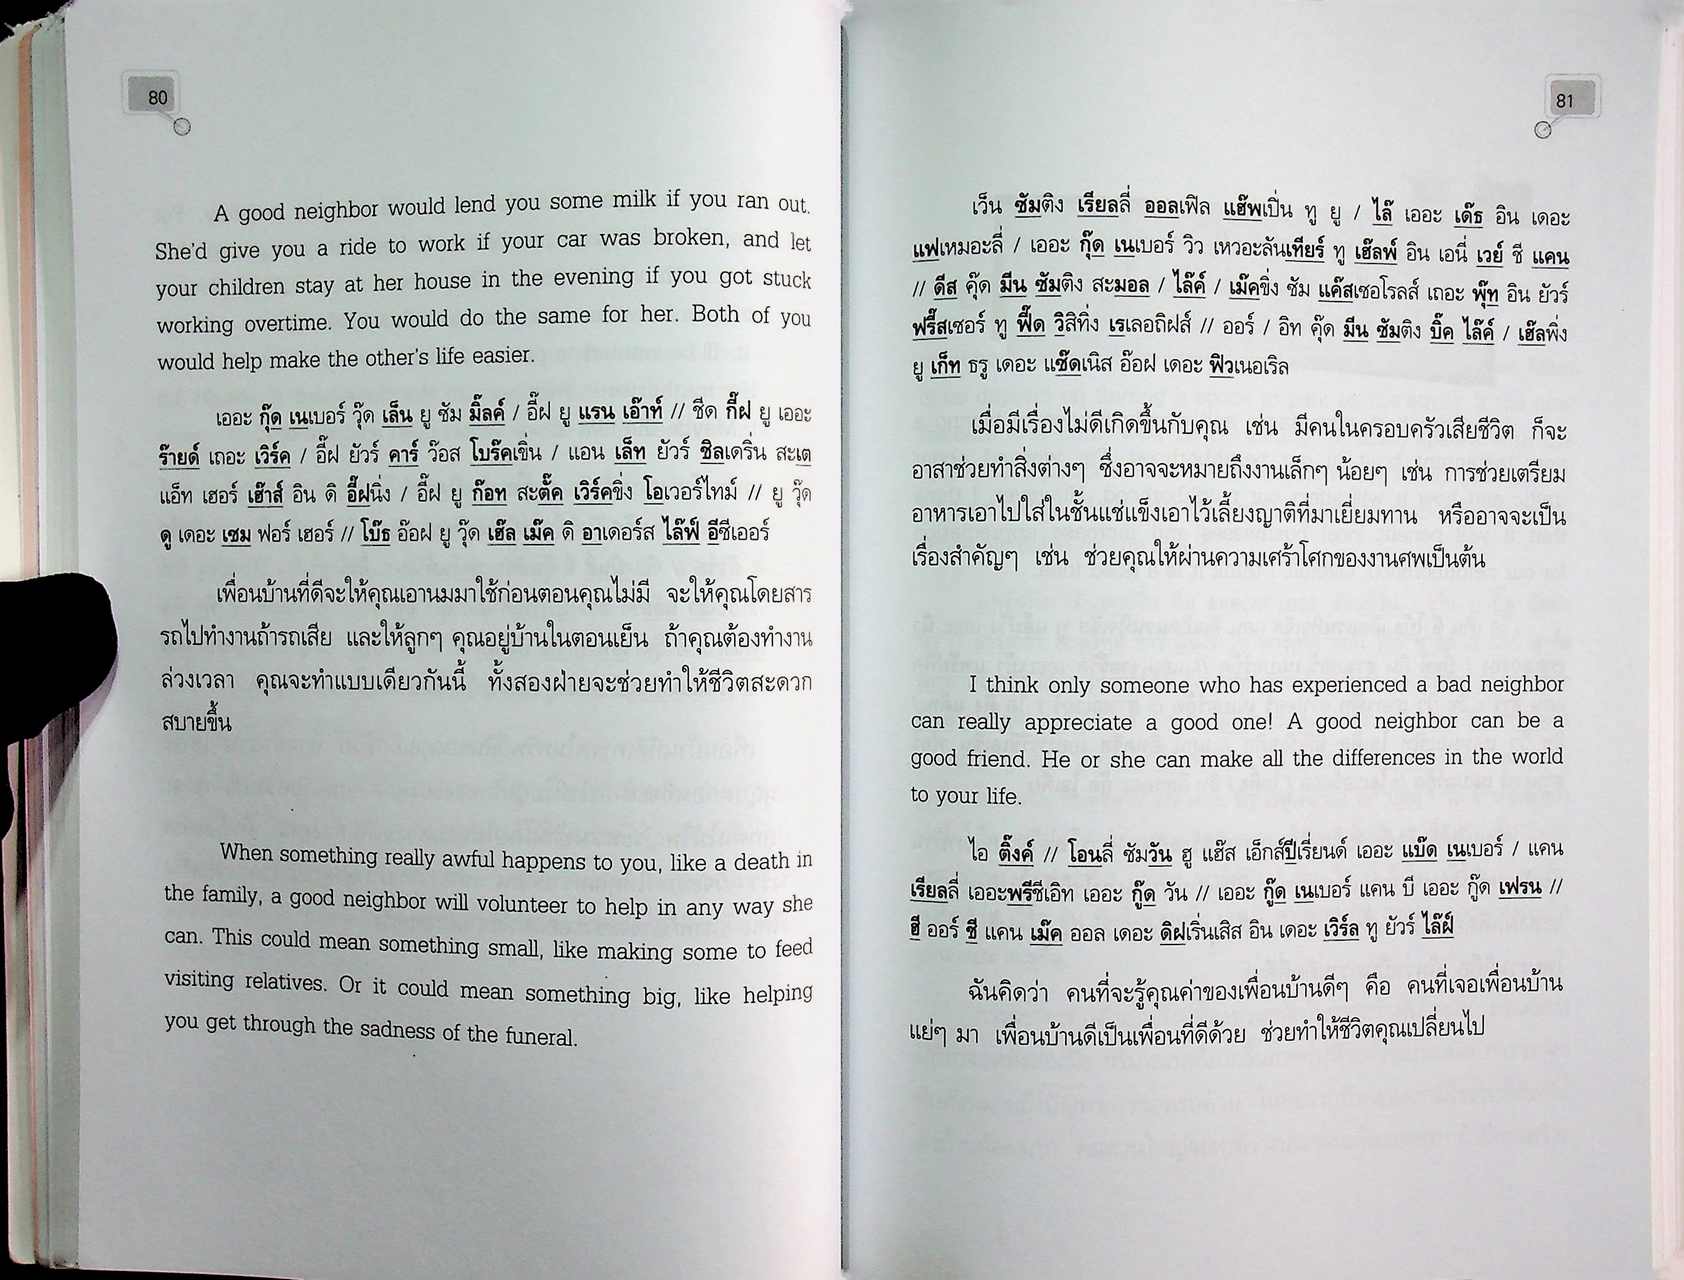 80
A good neighbor would lend you some milk if you ran out.
She'd give you a ride to work if your car was broken, and let
your children stay at her house in the evening if you got stuck
working overtime. You would do the same for her. Both of you
would help make the other's life easier.
เออะ กุ๊ด เนเบอร์ วุ๊ด เล็น ยู ซัม มิ๊ลค์ / อี๊ฝ ยู แรน เอ๊าท์ // ชีด กี๊ฝ ยู เออะ
ร๊ายด์ เถอะ เวิร์ค / อี๊ฝ ยัวร์ คาร์ ว๊อส โบร๊คเขิ่น / แอน เล็ท ยัวร์ ชิลเดริ่น สะเต
แอ็ท เฮอร์ เฮ๊าส์ อิน ดิ อี๊ฝนิ่ง / อี๊ฝ ยู ก๊อท สะตั๊ค เวิร์คขิ่ง โอเวอร์ไทม์ // ยู วุ๊ด
ดู เดอะ เซม ฟอร์ เฮอร์ // โบ๊ธ อ๊อฝ ยู วุ๊ด เฮ๊ล เม๊ค ดิ อาเดอร์ส ไล๊ฟ์ อีซีเออร์
เพื่อนบ้านที่ดีจะให้คุณเอานมมาใช้ก่อนตอนคุณไม่มี จะให้คุณโดยสาร
รถไปทำงานถ้ารถเสีย และให้ลูกๆ คุณอยู่บ้านในตอนเย็น ถ้าคุณต้องทำงาน
ล่วงเวลา คุณจะทำแบบเดียวกันนี้ ทั้งสองฝ่ายจะช่วยทำให้ชีวิตสะดวก
สบายขึ้น
When something really awful happens to you, like a death in
the family, a good neighbor will volunteer to help in any way she
can. This could mean something small, like making some to feed
visiting relatives. Or it could mean something big, like helping
you get through the sadness of the funeral.
81
เว็น ซัมติง เรียลลี่ ออลเฟิล แฮ๊พเปิ่น ทู ยู / ไล๊ เออะ เด๊ธ อิน เดอะ
แฟเหมอะลี่ / เออะ กุ๊ด เนเบอร์ วิว เหวอะลันเทียร์ ทู เฮ๊ลพ์ อิน เอนี่ เวย์ ชี แคน
// ดีส คุ๊ด มีน ซัมติง สะมอล / ไล๊ค์ / เม๊คขิ่ง ซัม แค๊สเซอโรลส์ เถอะ พุ๊ท อิน ยัวร์
ฟรี๊สเซอร์ ทู ฟี๊ด วิสิทิ่ง เรเลอถิฝส์ // ออร์ / อิท คุ๊ด มีน ซัมติง บิ๊ค ไล๊ค์ / เฮ๊ลพิ่ง
ยู เก็ท ธรู เดอะ แซ๊ดเนิส อ๊อฝ เดอะ ฟิวเนอเริล
เมื่อมีเรื่องไม่ดีเกิดขึ้นกับคุณ เช่น มีคนในครอบครัวเสียชีวิต ก็จะ
อาสาช่วยทำสิ่งต่างๆ ซึ่งอาจจะหมายถึงงานเล็กๆ น้อยๆ เช่น การช่วยเตรียม
อาหารเอาไปใส่ในชั้นแช่แข็งเอาไว้เลี้ยงญาติที่มาเยี่ยมทาน หรืออาจจะเป็น
เรื่องสำคัญๆ เช่น ช่วยคุณให้ผ่านความเศร้าโศกของงานศพเป็นต้น
I think only someone who has experienced a bad neighbor
can really appreciate a good one! A good neighbor can be a
good friend. He or she can make all the differences in the world
to your life.
ไอ ติ๊งค์ // โอนลี่ ซัมวัน ฮู แฮ๊ส เอ็กส์ปีเรี่ยนด์ เออะ แบ๊ด เนเบอร์ / แคน
เรียลลี่ เออะพรีชีเอิท เออะ กู๊ด วัน // เออะ กู๊ด เนเบอร์ แคน บี เออะ กู๊ด เฟรน //
ฮี ออร์ ชี แคน เม๊ค ออล เดอะ ดิฝเริ่นเสิส อิน เดอะ เวิร์ล ทู ยัวร์ ไล๊ฝ์
ฉันคิดว่า คนที่จะรู้คุณค่าของเพื่อนบ้านดีๆ คือ คนที่เจอเพื่อนบ้าน
แย่ๆ มา เพื่อนบ้านดีเป็นเพื่อนที่ดีด้วย ช่วยทำให้ชีวิตคุณเปลี่ยนไป